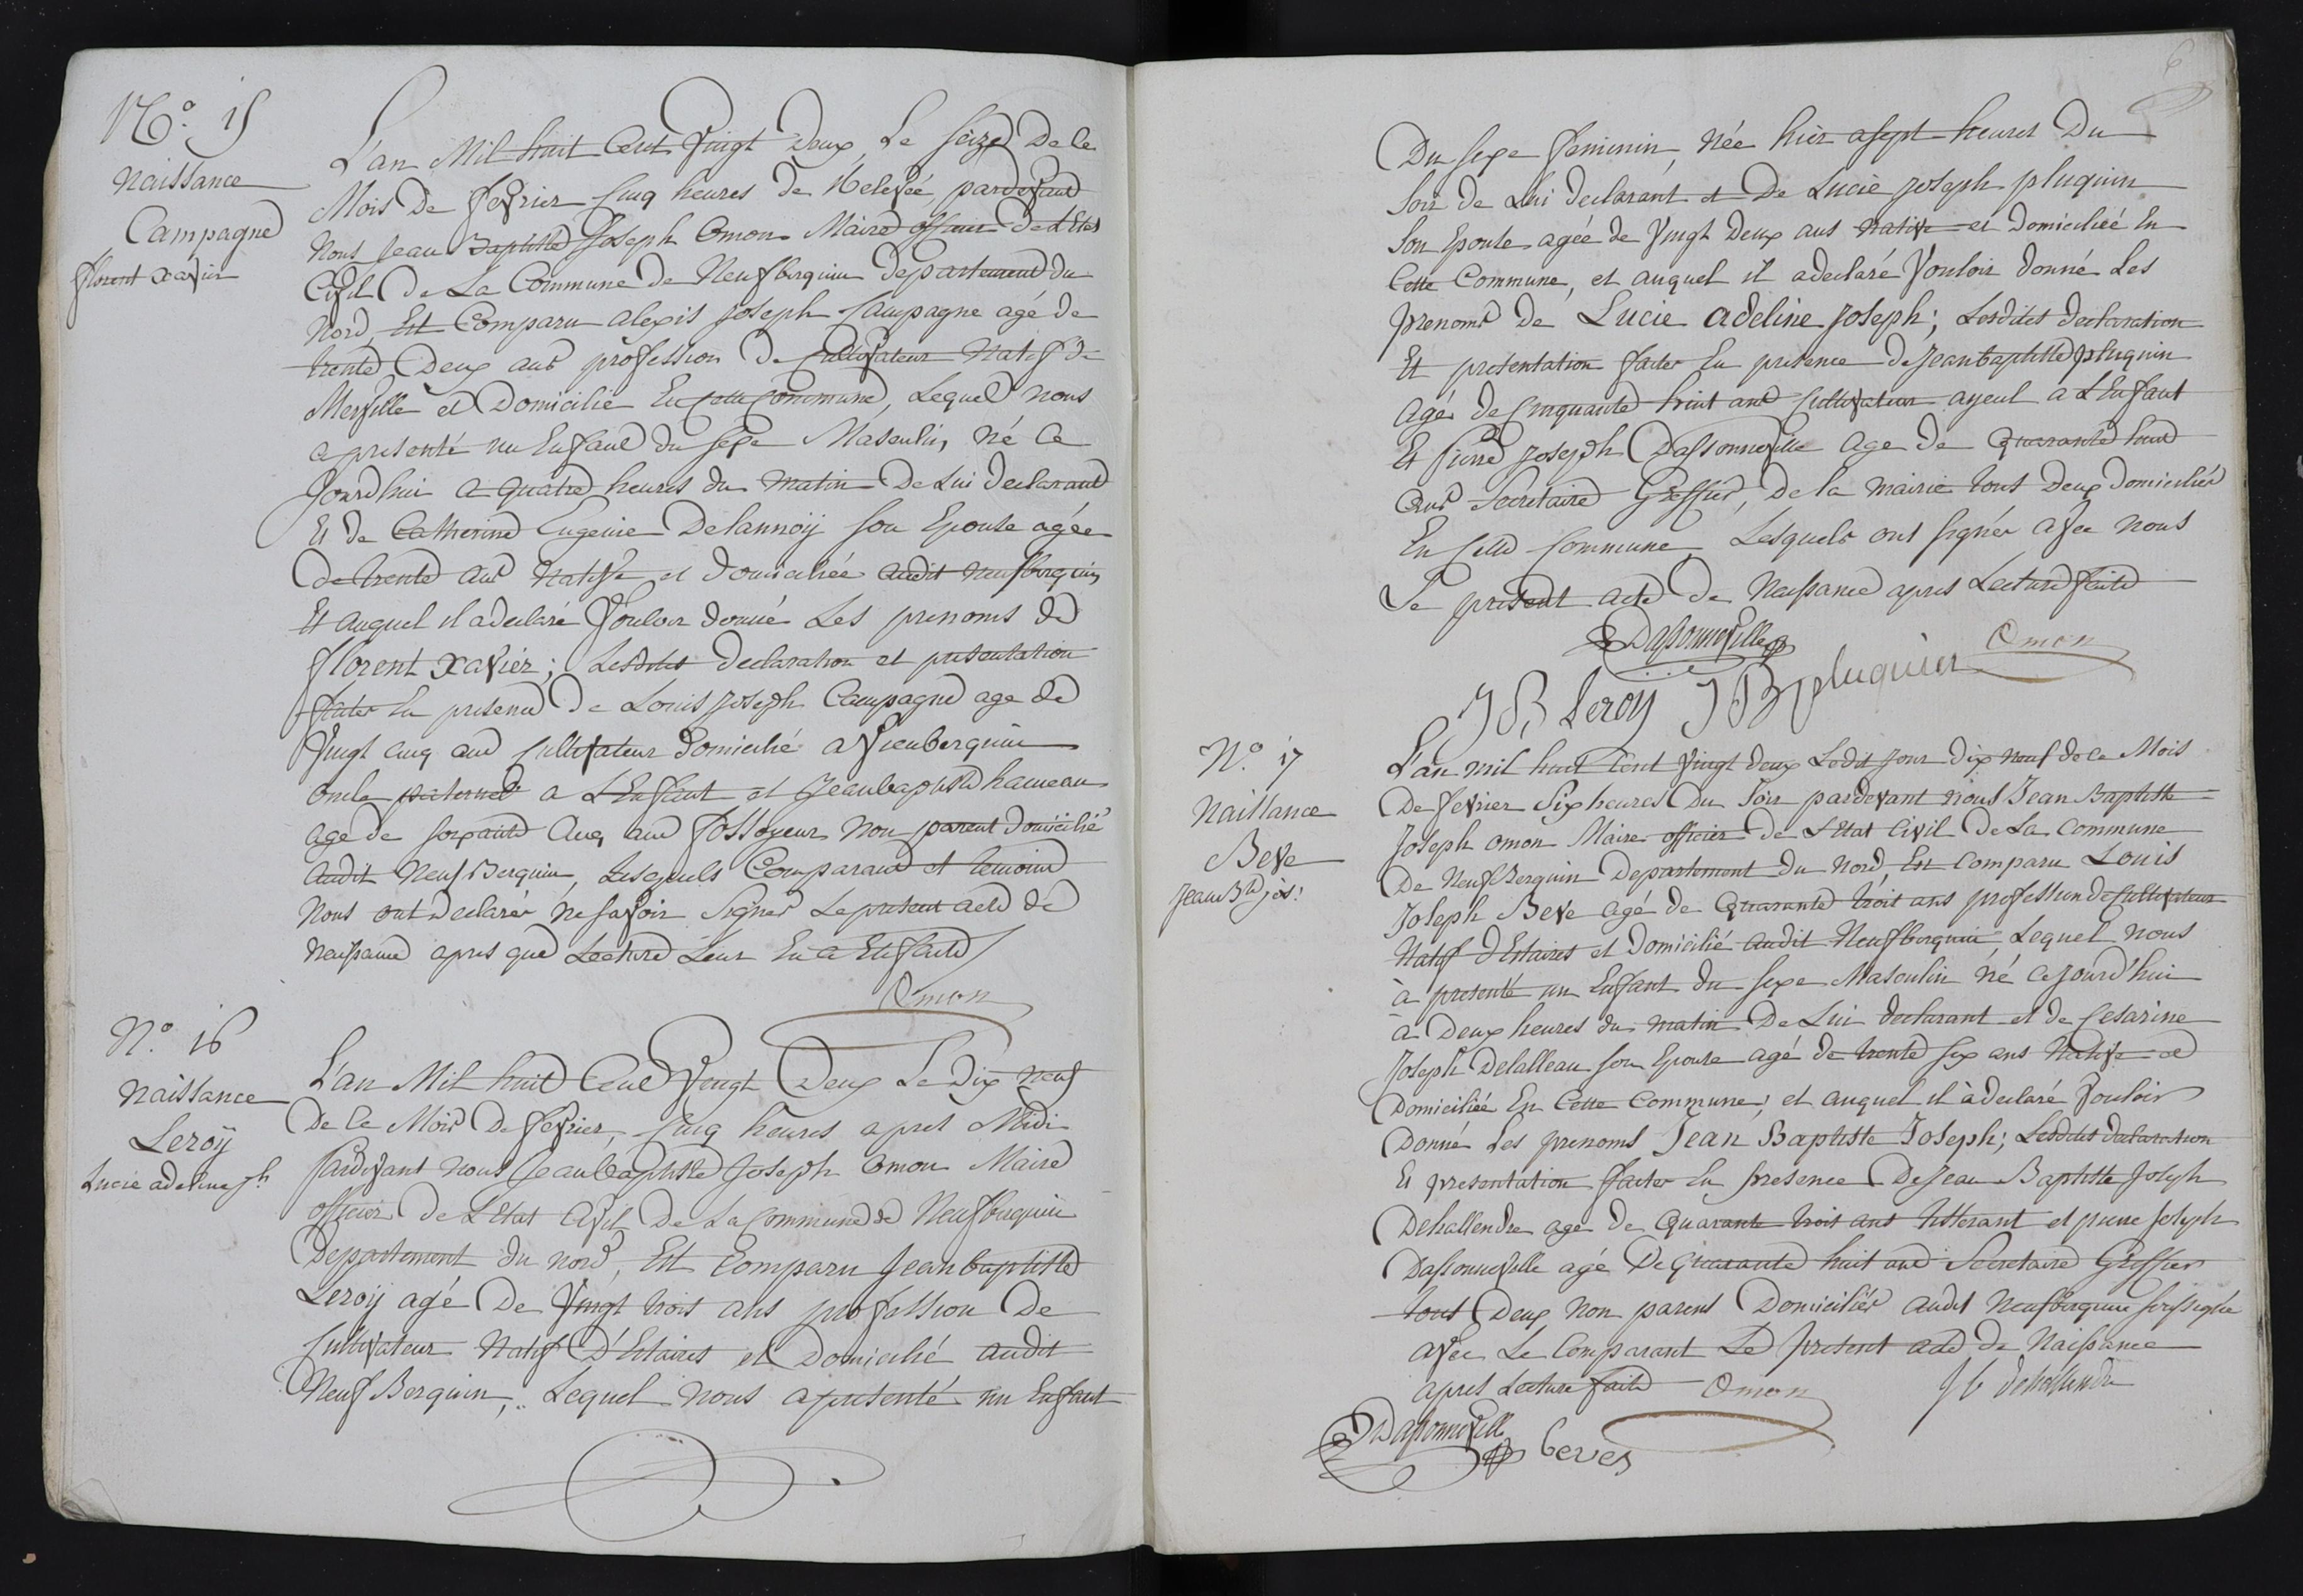 N.° 15
Naissance
Campagne
florent xavier
L'an Mil huit Cent Vingt Deux, Le Seize De ce
Mois De fevrier Cinq heures de Relevée, pardevant
Nous Jean Baptiste Joseph Omon Maire officier De L'Etat
Civil De La Commune de Neufberquin Departement du
Nord, Est Comparu alexis Joseph Campagne agé de
trente Deux ans profession De Cultivateur Natif De
Merville et Domicilié En Cette Commune, Lequel Nous
a presenté un Enfant du sexe Masculin, Né Ce
Jourdhui a quatre heures du matin De Lui Declarant
Et de Catherine Eugenie Delannoÿ son Epouse agée
de trente ans Native et domiciliée audit Neufberquin
Et auquel il a declaré Vouloir donné Les prenoms de
florent xavier; Lesdites declaration et presentation
faites En presence De Louis Joseph Campagne age de
Vingt cinq ans Cultivateur Domicilié a Vieuberquin
oncle paternel a L'Enfant et Jeanbaptiste hameau
age de soixante Cinq ans fossoyeur Non parent domicilié
audit Neuf Berquin, Lesquels Comparant et temoins
Nous ont declarés Ne savoir Signer Le present acte de
Naissance apres que Lecture Leur En a Eté faite
Omon
N.° 16
Naissance
Leroÿ
Lucie adeline jh
L'an Mil huit Cent Vingt Deux Le Dix neuf
De Ce Mois De fevrier, Cinq heures apres Midi
Pardevant Nous Jeanbaptiste Joseph Omon Maire
officier De L'Etat Civil De La Commune de Neufberquin
Departement du Nord, Est Comparu Jeanbaptiste
Leroÿ agé De Vingt trois ans profession De
Cultivateur Natif D'Estaires et Domicilié audit
Neuf Berquin, Lequel Nous a presenté un Enfant
6
Du sexe feminin, Née hier a sept heures Du
Soir de Lui declarant et De Lucie Joseph pluquin
Son Epouse agée de Vingt Deux ans Native et Domiciliée En
Cette Commune, et auquel il a declaré Vouloir donné Les
prenoms De Lucie adeline Joseph; Lesdites declaration
Et presentation faites En presence de Jeanbaptiste pluquin
Agé De Cinquante huit ans Cultivateur ayeul a L'Enfant
Et pierre Joseph Dassonneville age De Quarante huit
ans Secretaire Greffier, De la mairie tous Deux domiciliés
En Cette Commune, Lesquels ont signés avec Nous
Le present acte De Naissance apres Lecture faite
Dassonneville Omon
J B Leroy J B pluquin
N.° 17
Naissance
Beve
Jean Bte jos:
L'an mil huit Cent Vingt Deux Ledit jour Dix neuf de ce Mois
De fevrier Six heures Du Soir pardevant nous Jean Baptiste
Joseph omon Maire officier De L'Etat Civil De La Commune
De Neuf Berquin Departement du Nord, Est Comparu Louis
Joseph Beve agé de Quarante trois ans profession de Cultivateur
Natif D'Estaires et domicilié audit Neufberquin Lequel nous
à presenté un Enfant du sexe Masculin né Cejourd'hui
à Deux heures du matin De Lui declarant et de Cesarine
Joseph Delalleau son Epouse agé de trente six ans Native et
Domiciliée En Cette Commune; et auquel il à declaré Vouloir
Donné Les prenoms Jean Baptiste Joseph; Lesdites declaration
Et presentation faites En presence De Jean Baptiste Joseph
Dehallendre age de Quarante trois ans tisserant et pierre Joseph
Dassonneville agé De Quarante huit ans Secretaire Greffier
tous Deux Non parent Domiciliés audit Neufberquin soussigné
avec Le Comparant Le present acte de Naissance
apres Lecture faite Omon J b dehallendre
Dassonneville beves